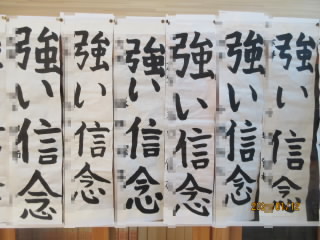 強い信念
強い信念
強い信念
強い信念
強い信念
強い信念